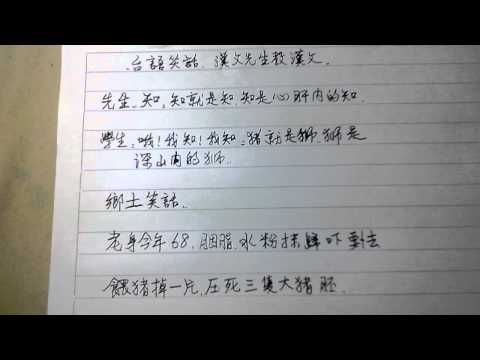 台語笑話. 漢文先生教漢文.
先生. 知, 知就是知. 知是心肝內的知.
學生. 哦! 我知! 我知. 猪就是獅. 獅是
深山內的獅.
鄉土笑話.
老身今年68. 胭脂. 水粉抹 吓 到去
餵猪掉一片. 压死三隻大猪胚.